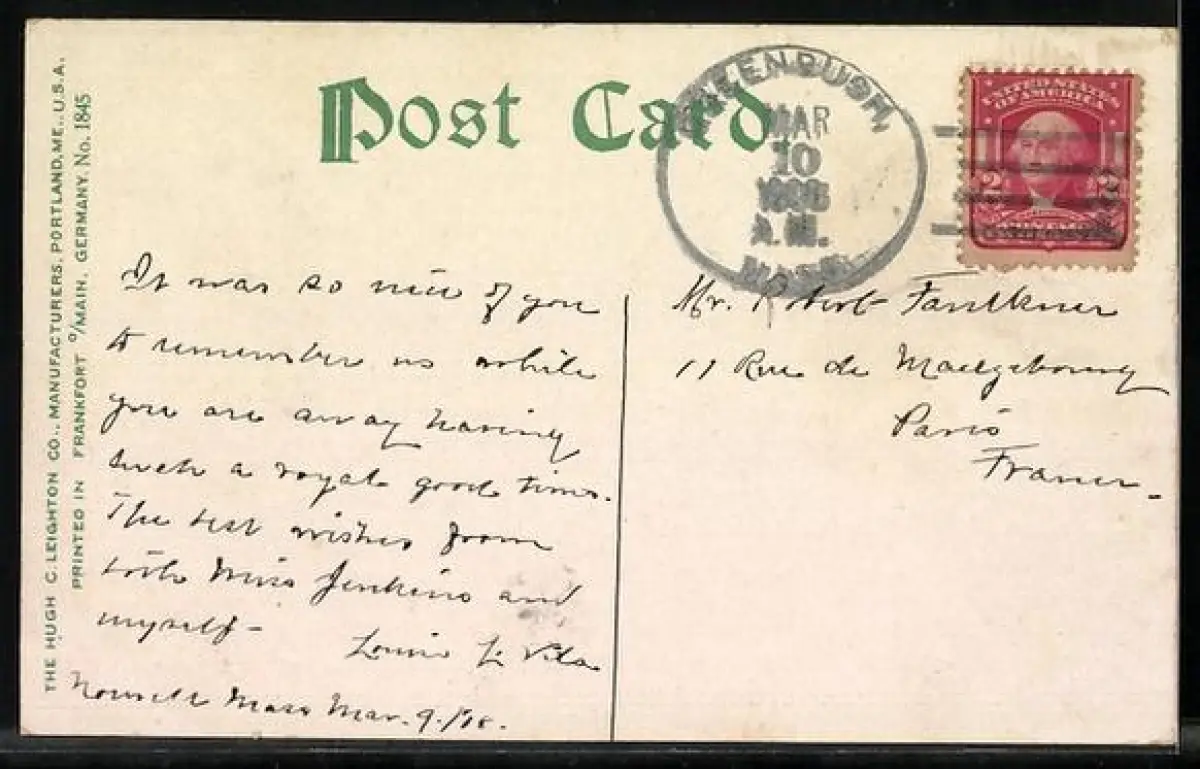 THE HUGH C. LEIGHTON CO., MANUFACTURERS, PORTLAND, ME., U.S.A.
PRINTED IN FRANKFORT O/MAIN, GERMANY. No. 1845
Post Card
GREENBUSH,
MAR
10
A.M.
MASS.
UNITED STATES
OF AMERICA
2 2
It was so nice of you
to remember us while
you are away having
such a royal good time.
The best wishes from
both Miss Jenkins and
myself -
Mass Mar. 9
Mr. Robert Faulkner
11 Rue de
Paris
France -